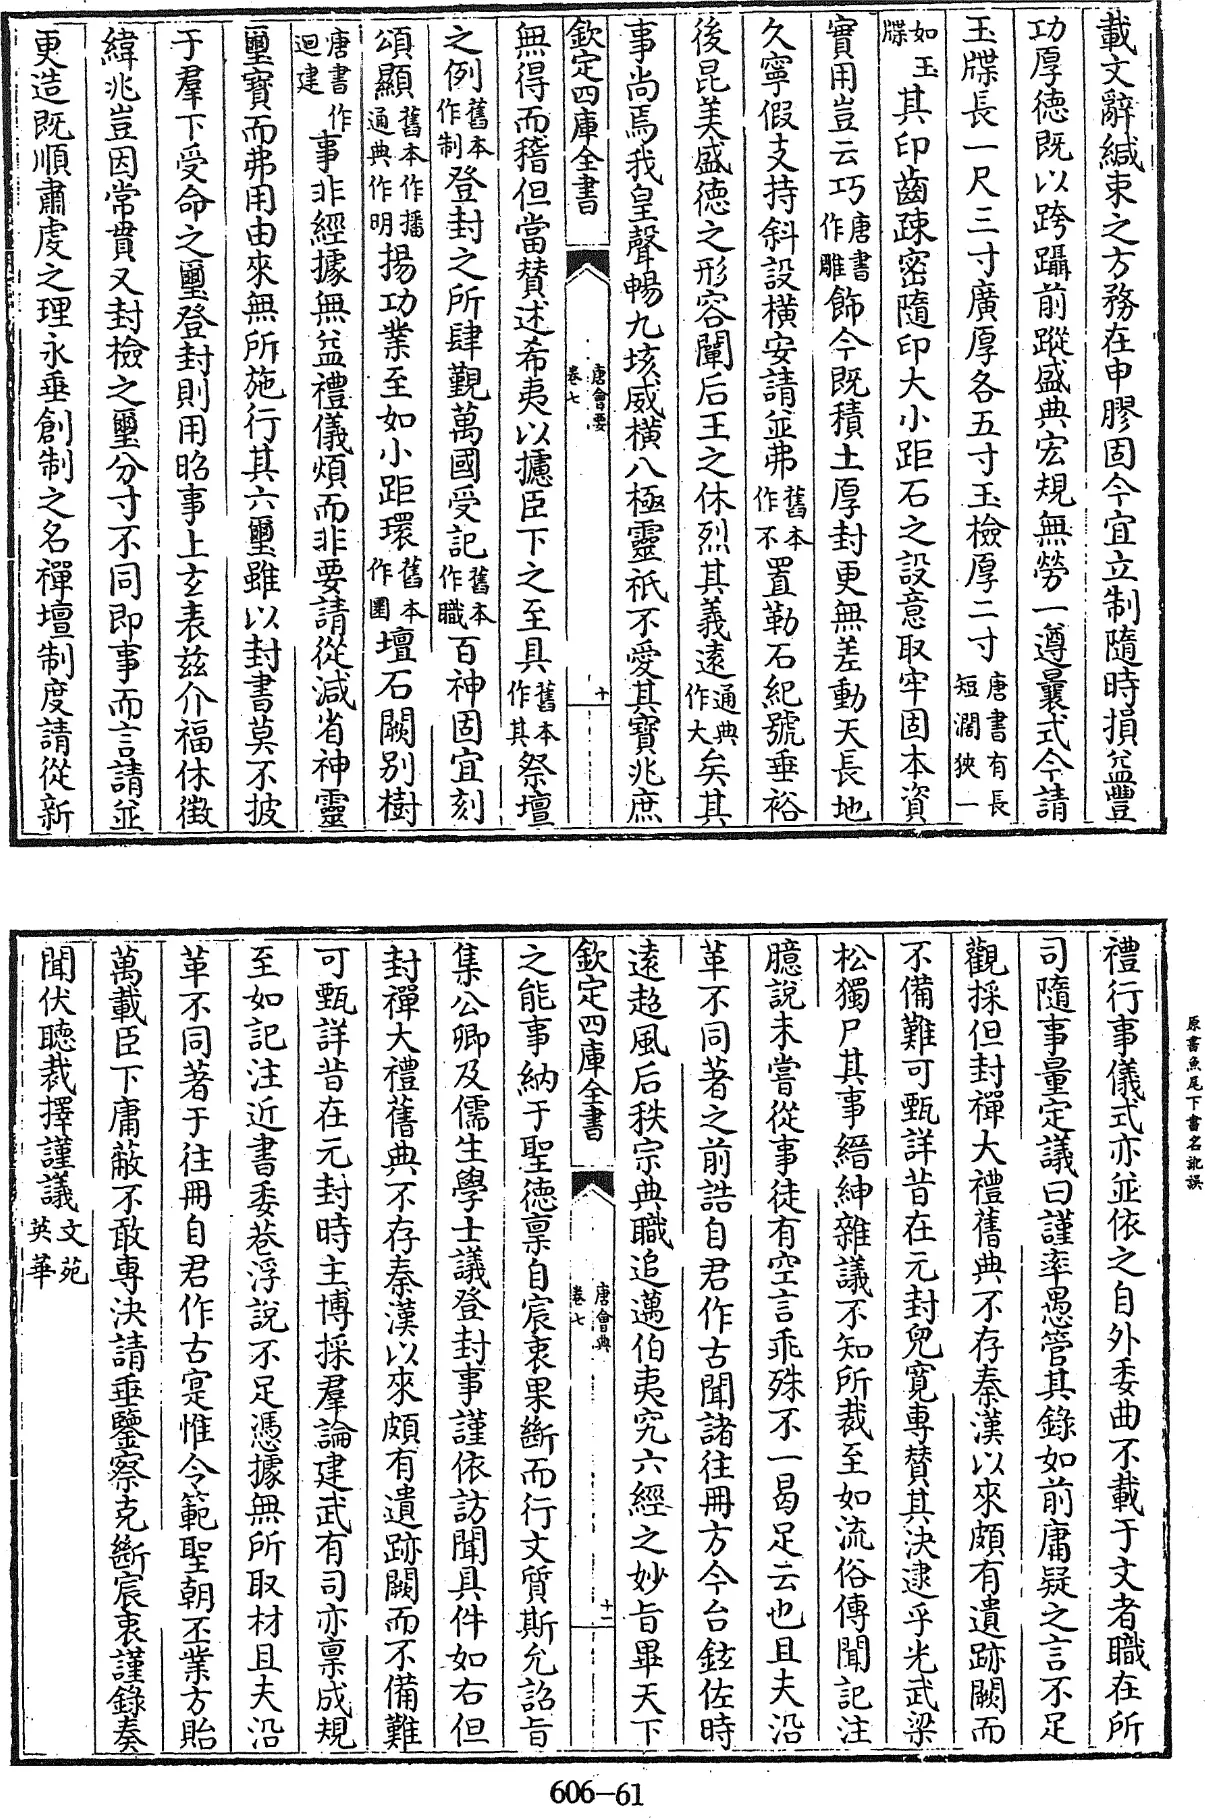 載文辭緘束之方務在申膠固今宜立制隨時損益豐
功厚德既以跨躡前蹤盛典宏規無勞一遵曩式今請
玉牒長一尺三寸廣厚各五寸玉檢厚二寸唐書有長短濶狹一
如玉牒其印齒疎密隨印大小距石之設意取牢固本資
實用豈云巧唐書作雕飾今既積土厚封更無差動天長地
久寧假支持斜設橫安請並弗舊本作不置勒石紀號垂裕
後昆美盛德之形容闡后王之休烈其義遠通典作大矣其
事尚焉我皇聲暢九垓威橫八極靈祇不愛其寶兆庶
欽定四庫全書
唐會要
卷七
十
無得而稽但當賛述希夷以攄臣下之至具舊本作其祭壇
之例舊本作制登封之所肆覲萬國受記舊本作職百神固宜刻
頌顯舊本作播通典作明揚功業至如小距環舊本作圜壇石闕别樹
唐書作迴建事非經據無益禮儀煩而非要請從減省神靈
璽寶而弗用由來無所施行其六璽雖以封書莫不披
于羣下受命之璽登封則用昭事上玄表茲介福休徵
緯兆豈因常貫又封檢之璽分寸不同即事而言請並
更造既順肅虔之理永垂創制之名禪壇制度請從新
禮行事儀式亦並依之自外委曲不載于文者職在所
司隨事量定議曰謹率愚管其錄如前庸疑之言不足
觀採但封禪大禮舊典不存秦漢以來頗有遺跡闕而
不備難可甄詳昔在元封兒寬專賛其決逮乎光武梁
松獨尸其事縉紳雜議不知所裁至如流俗傳聞記注
臆說未嘗從事徒有空言乖殊不一曷足云也且夫沿
革不同著之前誥自君作古聞諸往冊方今台鉉佐時
遠超風后秩宗典職追邁伯夷究六經之妙旨畢天下
欽定四庫全書
唐會典
卷七
十二
之能事納于聖德稟自宸衷果斷而行文質斯允詔旨
集公卿及儒生學士議登封事謹依訪聞具件如右但
封禪大禮舊典不存秦漢以來頗有遺跡闕而不備難
可甄詳昔在元封時主博採羣論建武有司亦稟成規
至如記注近書委巷浮說不足憑據無所取材且夫沿
革不同著于往冊自君作古寔惟令範聖朝丕業方貽
萬載臣下庸蔽不敢專決請垂鑒察克斷宸衷謹錄奏
聞伏聽裁擇謹議文苑英華
原書魚尾下書名訛誤
606-61